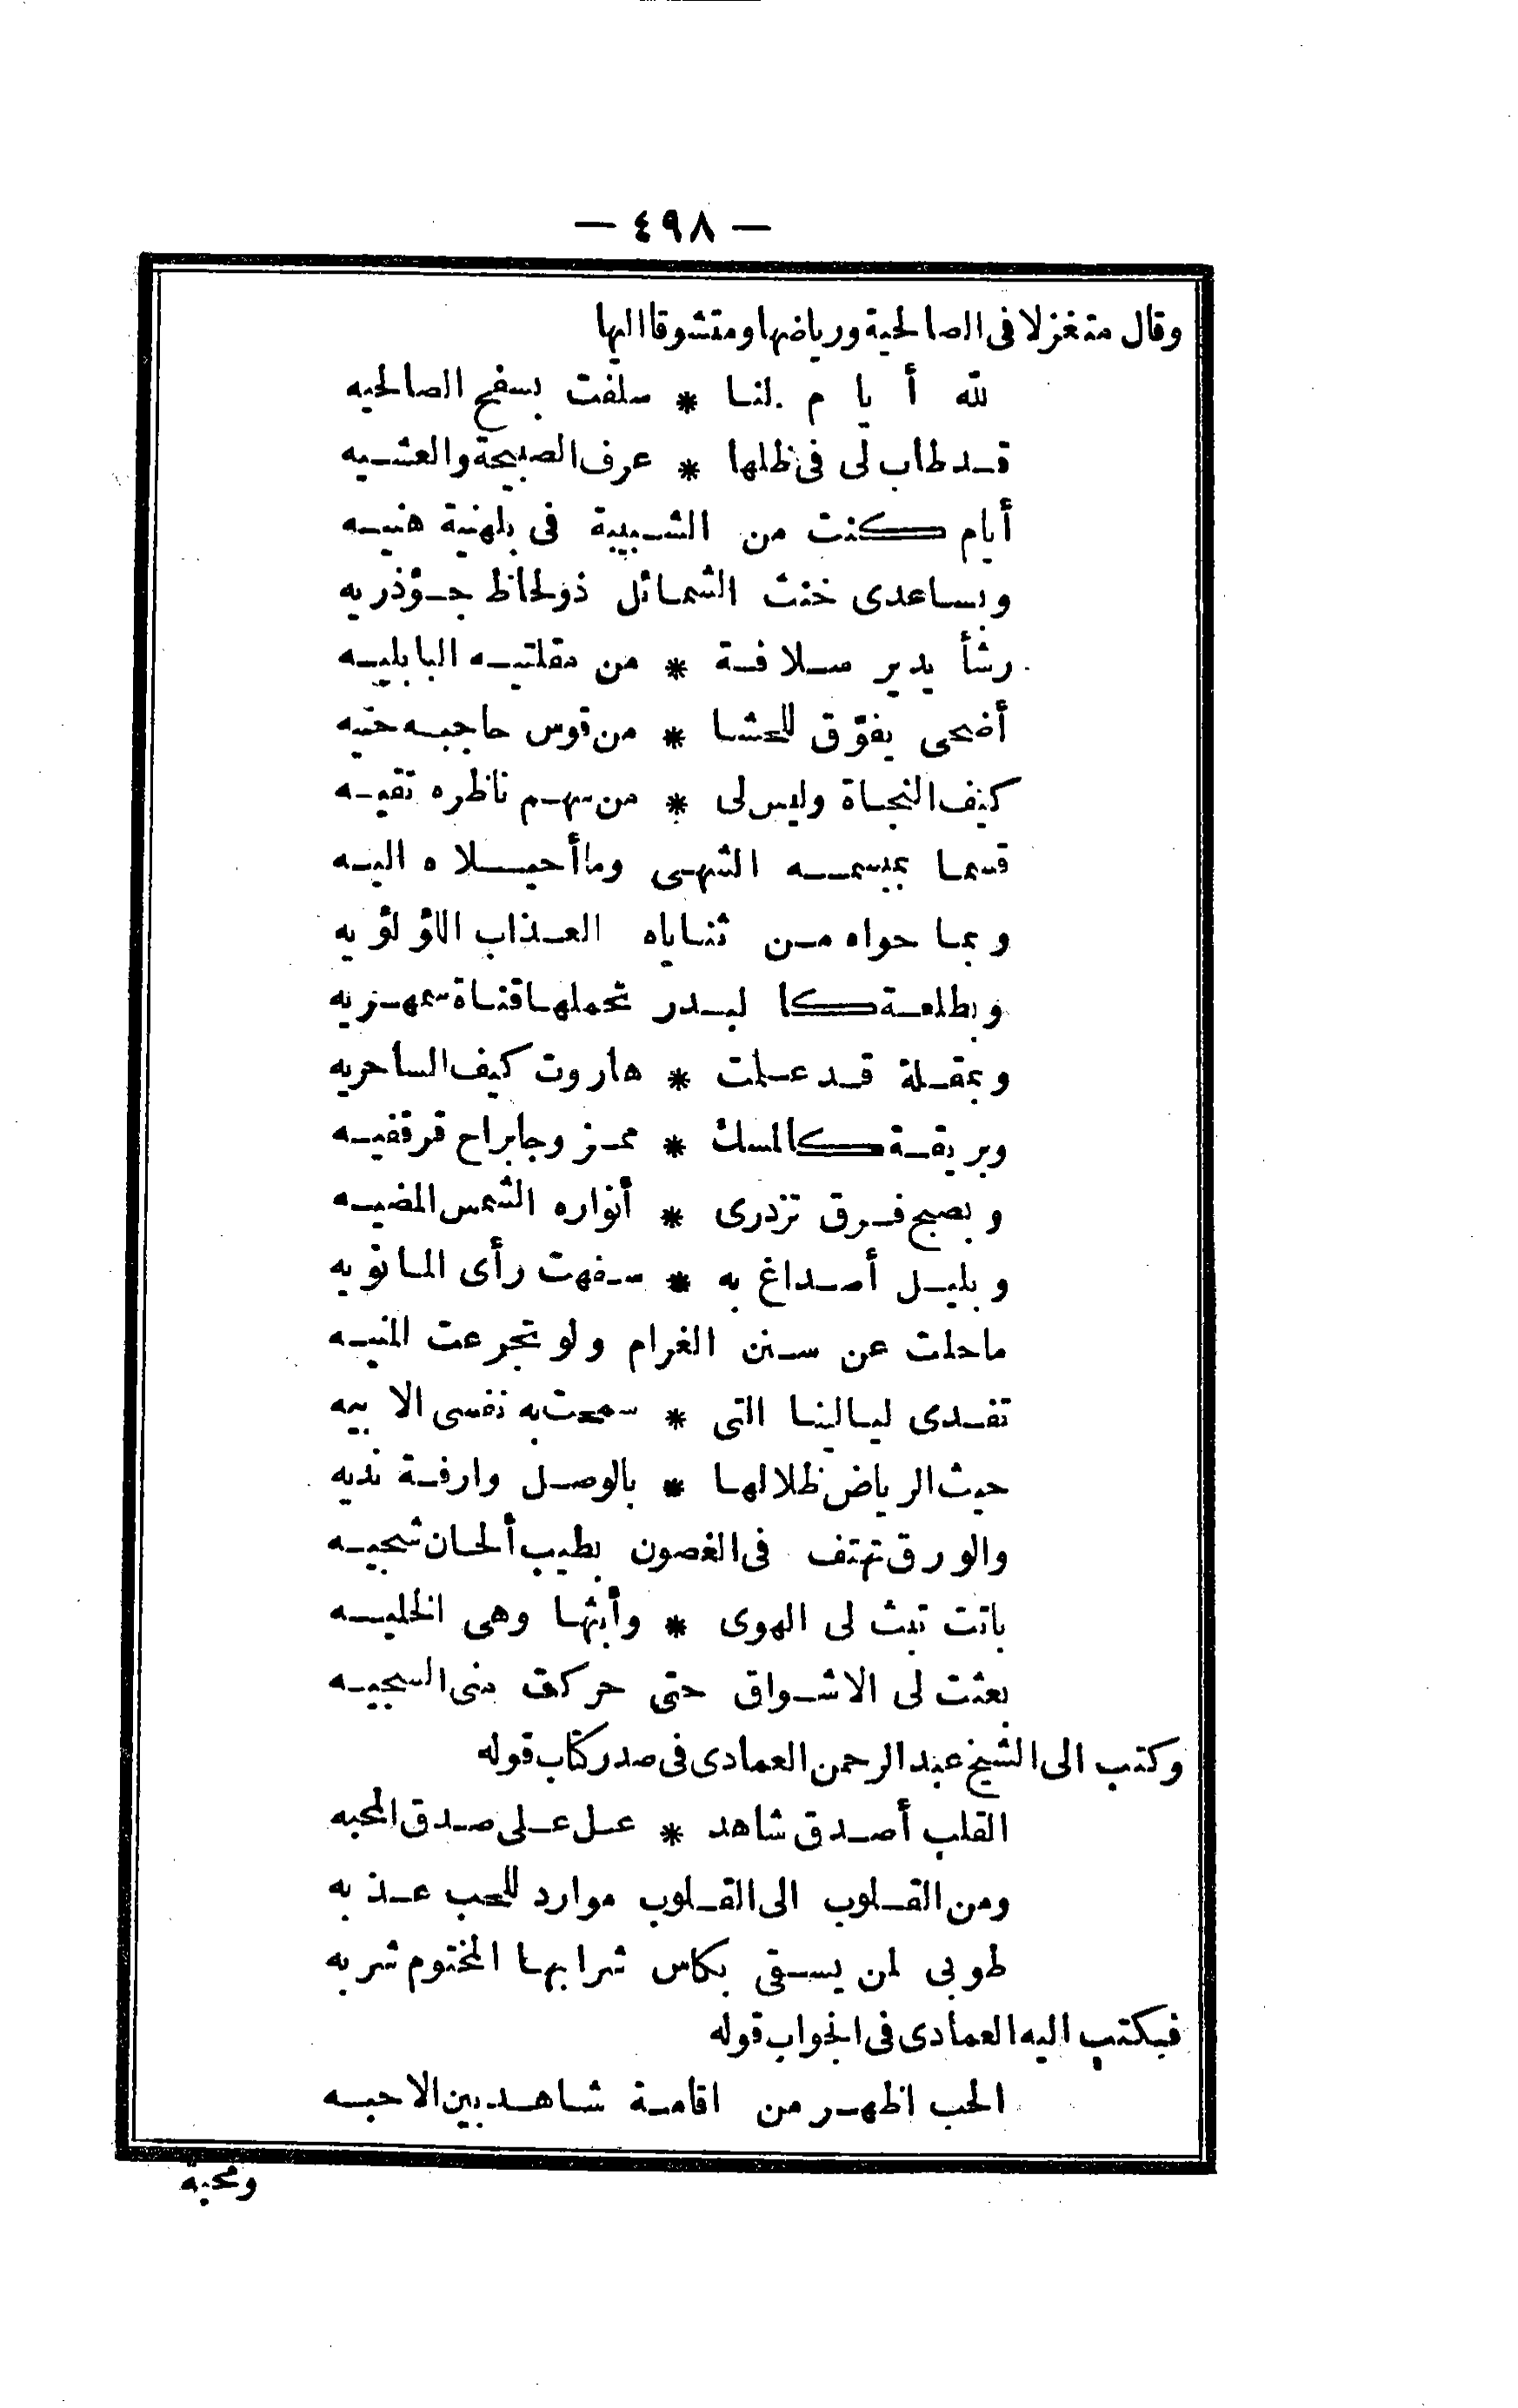 — ٤٩٨ —
وقال متغزلا فى الصالحية ورياضها ومتشوقا اليها
لله أيام لنا * سلفت بسفح الصالحيه
قد طاب لى فى ظلها * عرف الصبيحة والعشيه
أيام كنت من الشبيبة فى بلهنية هنيه
وبساعدى خنث الشمائل ذو لحاظ جؤذريه
رشأ يدير سلافة * من مقلتيه البابليه
أضحى يفوّق للحشا * من قوس حاجبه حنيه
كيف النجاة وليس لى * من سهم ناظره تقيه
قسما بمبسمه الشهى وما أحيلاه اليه
وبما حواه من ثناياه العذاب اللؤلؤيه
وبطلعة كالبدر تحملها قناة سمهريه
وبمقلة قد علمت * هاروت كيف الساحريه
وبريقة كالمسك * ممزوجا براح قرقفيه
وبصبح فرق تزدرى * أنواره الشمس المضيه
وبليل أصداغ به * سفهت رأى المانويه
ماحلت عن سنن الغرام ولو تجرعت المنيه
تفدى ليالينا التى * سمحت به نفسى الابيه
حيث الرياض ظلالها * بالوصل وارفة نديه
والورق تهتف فى الغصون بطيب ألحان شجيه
باتت تبث لى الهوى * وأبثها وهى الخليه
بعثت لى الاشواق حتى حركت منى السجيه
وكتب الى الشيخ عبد الرحمن العمادى فى صدر كتاب قوله
القلب أصدق شاهد * عدل على صدق المحبه
ومن القلوب الى القلوب موارد للحب عذبه
طوبى لمن يسقى بكاس شرابها المختوم شربه
فكتب اليه العمادى فى الجواب قوله
الحب اظهر من اقامة شاهد بين الاحبه
ومحبة